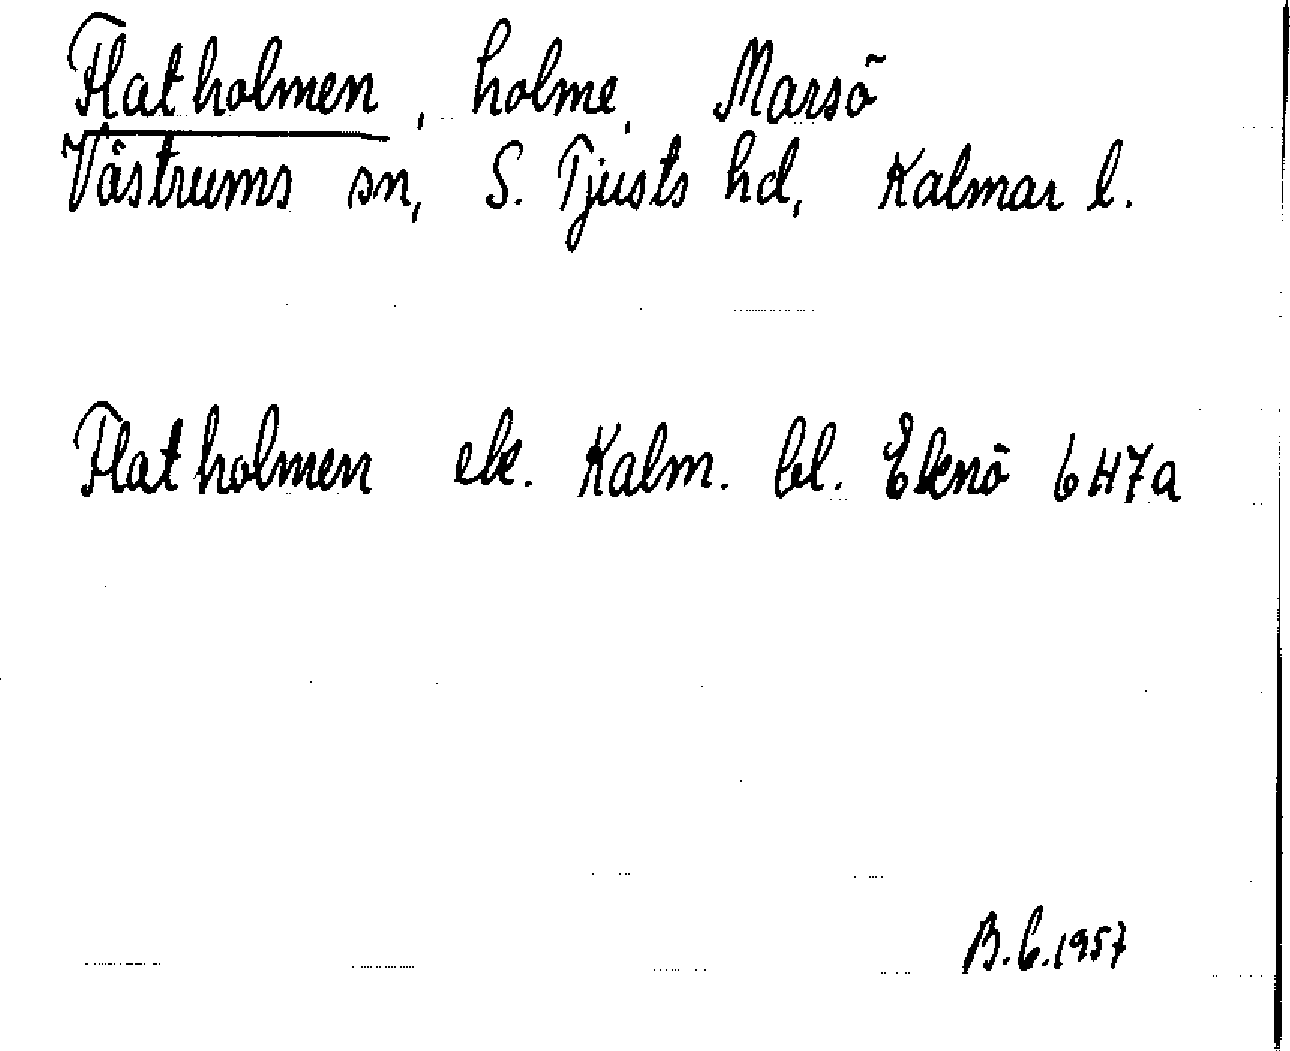 Flatholmen, holme, Marsö
Västrums sn, S. Tjusts hd, Kalmar l.
Flatholmen ek. Kalm. bl. Ekenö 6H7a
B.C.1957